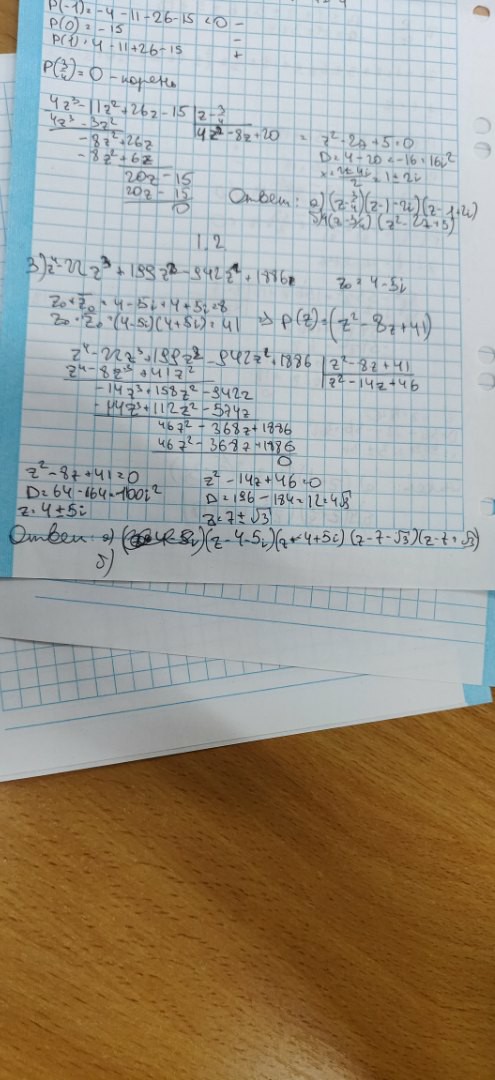 P(-1) = -4 -11 -26 -15 < 0 -
P(0) = -15 -
P(1) = 4 -11 +26 -15 +
P(3/4) = 0 - корень
4z³ - 11z² + 26z - 15 | z - 3/4
4z³ - 3z² | 4z² - 8z + 20 = z² - 2z + 5 = 0
-8z² + 26z D = 4 - 20 = -16 = 16i²
-8z² + 6z x = (2 ± 4i)/2 = 1 ± 2i
20z - 15
20z - 15
0
Ответ: а) (z - 3/4)(z - 1 - 2i)(z - 1 + 2i)
(z - 3/4)(z² - 2z + 5)
1, 2
3) z⁴ - 22z³ + 199z² - 942z + 1886 z₀ = 4 - 5i
z₀ + z̄₀ = 4 - 5i + 4 + 5i = 8
z₀ · z̄₀ = (4 - 5i)(4 + 5i) = 41 => P(z) = (z² - 8z + 41)
z⁴ - 22z³ + 199z² - 942z + 1886 | z² - 8z + 41
z⁴ - 8z³ + 41z² | z² - 14z + 46
-14z³ + 158z² - 942z
-14z³ + 112z² - 574z
46z² - 368z + 1886
46z² - 368z + 1886
0
z² - 8z + 41 = 0 z² - 14z + 46 = 0
D = 64 - 164 = 100i² D = 196 - 184 = 12 = 4√3
z = 4 ± 5i z = 7 ± √3
Ответ: а) (z - 4 - 5i)(z - 4 + 5i)(z - 7 - √3)(z - 7 + √3)
б)